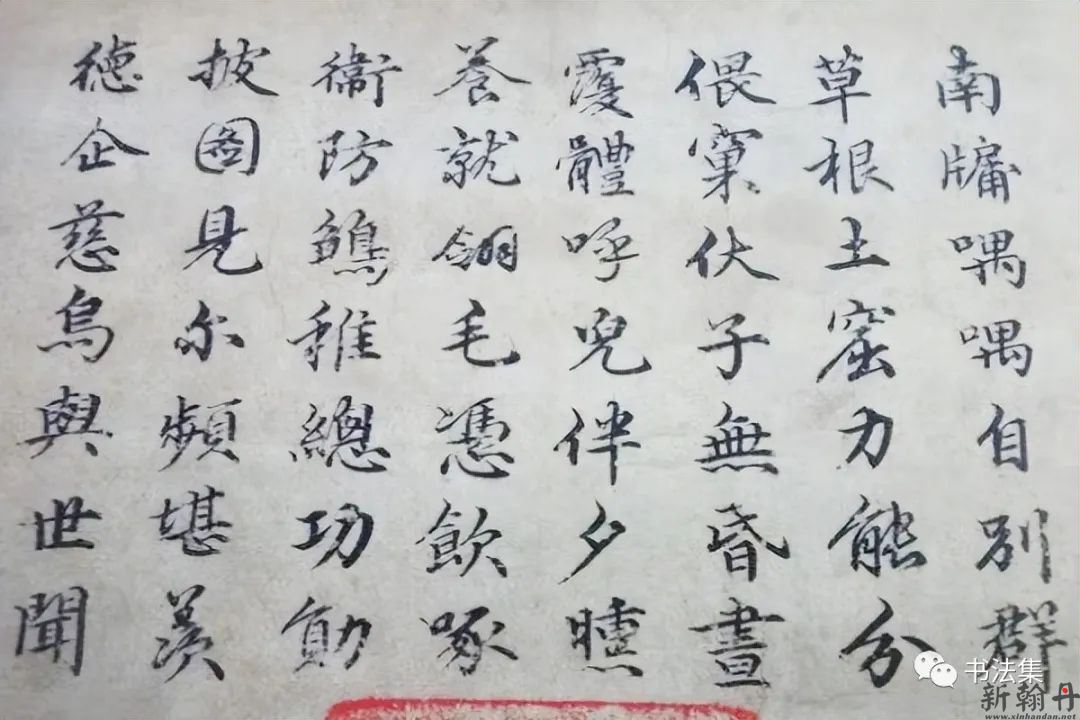 南牖喁喁自别群
草根土窟力能分
偎窠伏子無昏晝
覆體呼兒伴夕曛
養就翎毛憑飲啄
衞防鶵稚總功勛
披圖見尔頻堪羨
德企慈烏與世聞
书法集
新翰丹
www.xinhandan.net